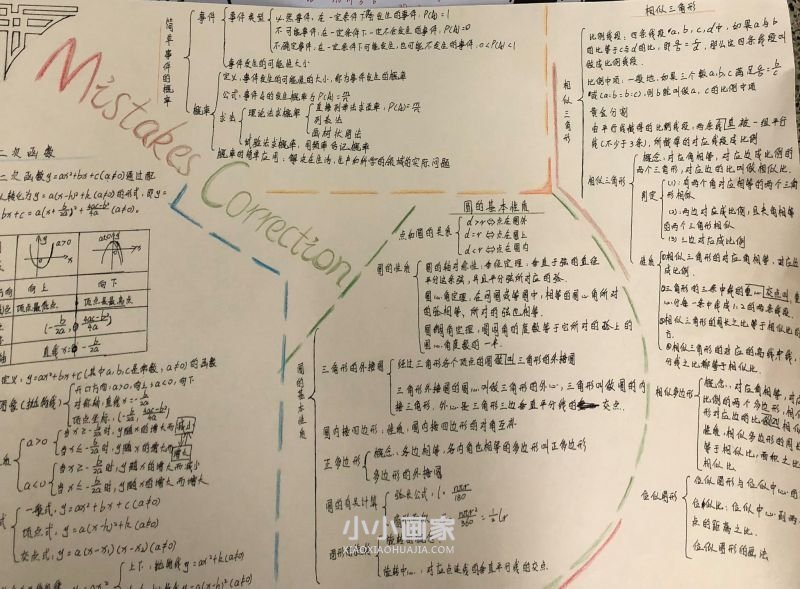 Mistakes
Correction
简单事件的概率
事件
事件类型
必然事件,在一定条件下必发生的事件,P(A)=1
不可能事件,在一定条件下一定不会发生的事件,P(A)=0
不确定事件,在一定条件下可能发生,也可能不发生的事件,0<P(A)<1
事件发生的可能性大小
概率
定义,事件发生的可能性的大小,称为事件发生的概率
公式:
求法
理论法求概率
直接列举法求概率,
列表法
画树状图法
试验法求概率,用频率估记概率
概率的简单应用:解决在生活,生产和科学的领域的实际问题
二次函数
二次函数y=ax²+bx+c(a≠0)通过配
转化为y=a(x-h)²+k(a≠0)的形式,即y=
a>0
a<0
向上
向下
顶点是最低点
顶点是最高点
直线x=-b/2a
定义,y=ax²+bx+c(其中a,b,c是常数,a≠0)的函数
图像(抛物线)
开口方向:a>0,向上;a<0,向下
对称轴:直线x=-b/2a
顶点坐标,(-b/2a, 4ac-b²/4a)
a>0
当x≥-b/2a时,y随x的增大而
当x≤-b/2a时,y随x的增大而
a<0
当x≥-b/2a时,y随x的增大而减小
当x≤-b/2a时,y随x的增大而增大
一般式,y=ax²+bx+c(a≠0)
顶点式,y=a(x-h)²+k(a≠0)
交点式,y=a(x-x₁)(x-x₂)(a≠0)
圆的基本性质
圆的基本性质
点和圆的关系
d>r⇔点在圆外
d=r⇔点在圆上
d<r⇔点在圆内
圆的性质
圆的轴对称性:垂径定理,垂直于弦的直径
平分这条弦,并且平分弦所对应的弧.
圆心角定理,在同圆或等圆中,相等的圆心角所对
的弧相等,所对的弦也相等.
圆周角定理,圆周角的度数等于它所对的弧上的
圆心角度数的一半.
三角形的外接圆
经过三角形各个顶点的圆叫三角形的外接圆
三角形外接圆的圆心叫做三角形的外心,三角形叫做圆的内
接三角形,外心是三角形三边垂直平分线的交点.
圆内接四边形:性质,圆内接四边形的对角互补
正多边形
概念,各边相等,各内角也相等的多边形叫正多边形
多边形的外接圆
圆的有关计算
弧长公式,l=nπr/180
nπr²/360=½lr
旋转中心,对应点连线的垂直平分线的交点.
相似三角形
相似三角形
比例线段:四条线段a,b,c,d中,如果a与b
的比等于c与d的比,即a/b=c/d,那么这四条线段叫
做成比例线段.
比例中项:一般地,如果三个数a,b,c满足a/b=b/c
或(a:b=b:c),则b就叫做a,c的比例中项
黄金分割
由平行线截得的比例线段,两条直线被一组平行
线(不少于3条)所截得的对应线段成比例
相似三角形
概念,对应角相等,对应边成比例的
两个三角形,对应边的比叫做相似比.
判定
(1):有两个角对应相等的两个三角
形相似
(2):两边对应成比例,且夹角相等
的两个三角形相似
(3)三边对应成比例
性质
相似三角形的对应角相等,对应边
成比例.
三角形的三条中线的重心
心分每一条中线成1:2的两条线段.
相似三角形的周长之比等于相似比
相似三角形的对应的高线
分线之比都等于相似比.
相似多边形
概念,对应角相等,对应
比例的两个多边形,相似
形对应边的比
性质,相似多边形的周长
等于相似比,面积之比
相似比
位似图形
位似图形与位似中心
位似比:位似中心到两
点的距离之比.
位似图形的画法
小小画家
XIAOXIAOHUAJIA.COM